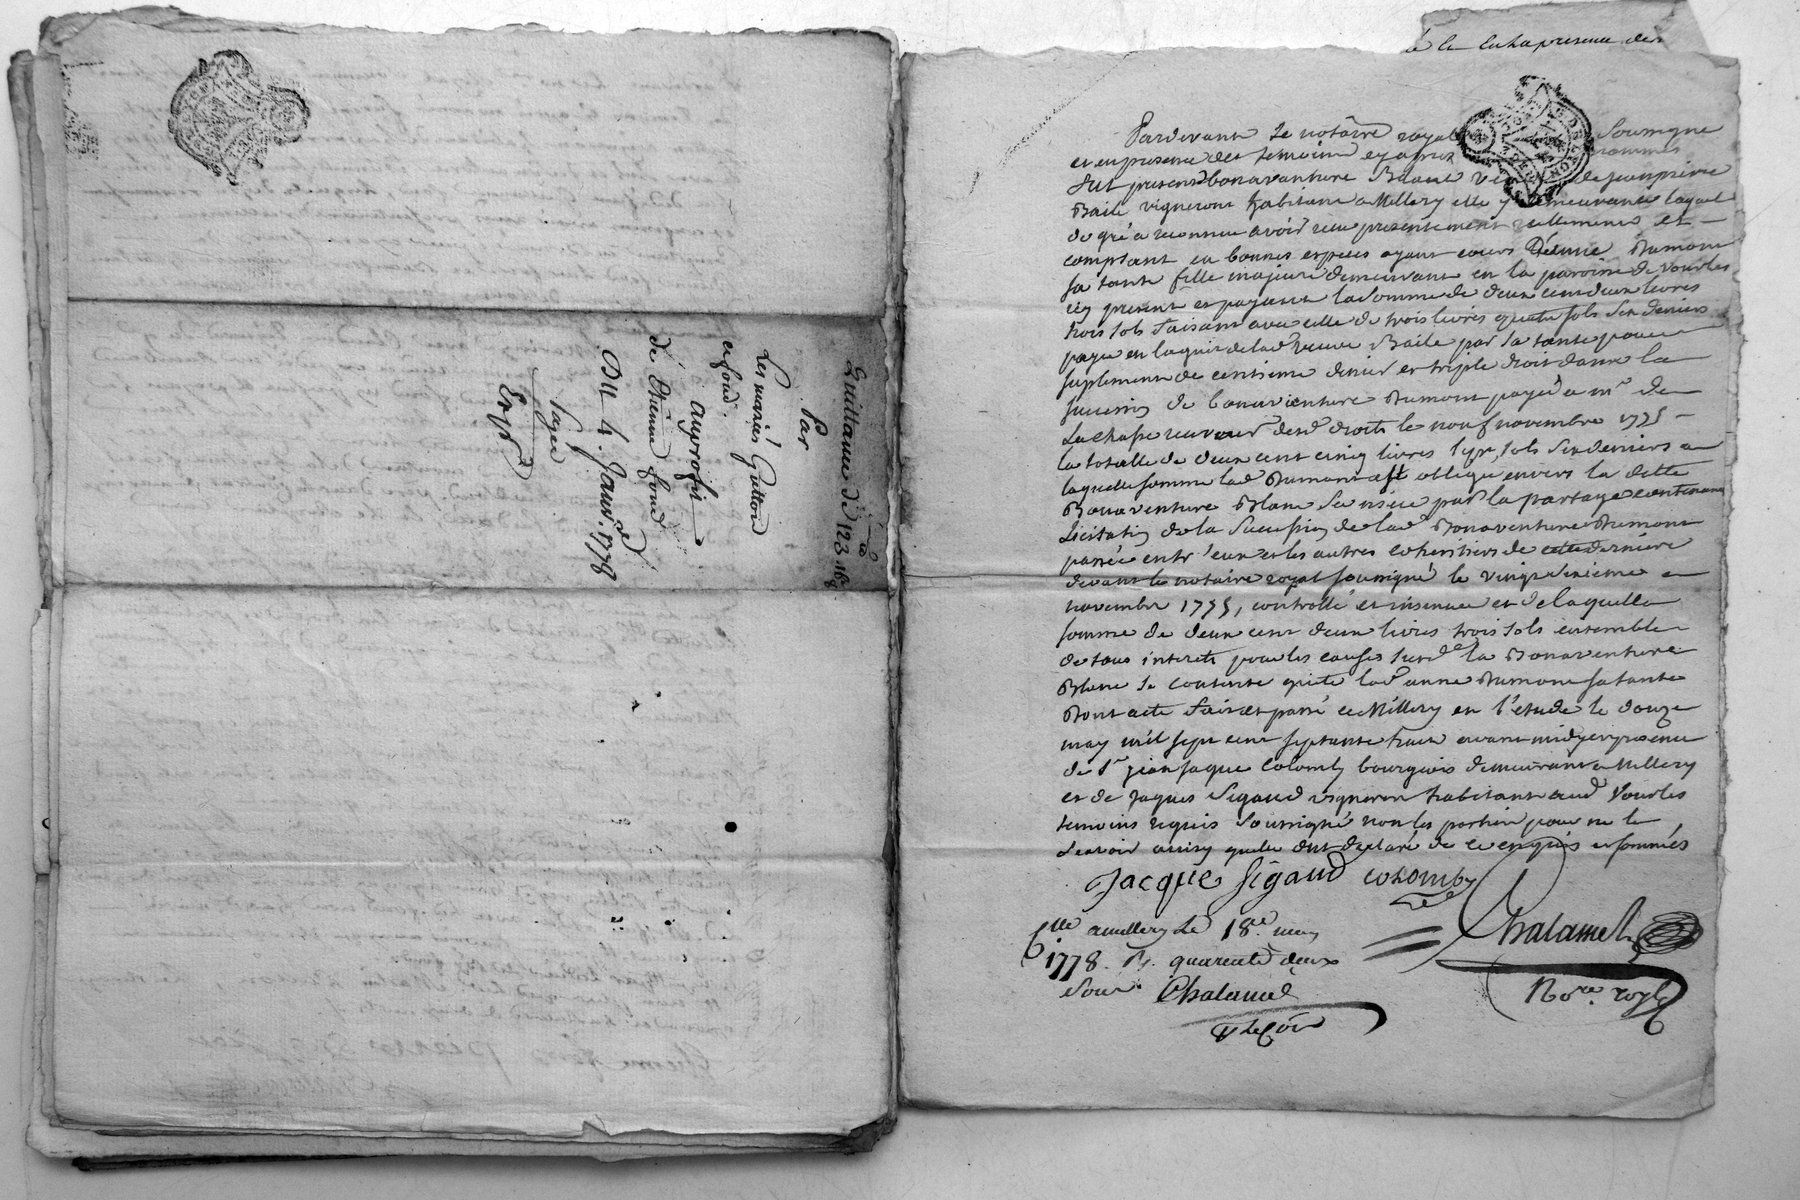 Quittance de 123 # 18 s
Par
Les mariés Guitton
et fond.
au profit
de Etienne fond
Du 4. Janvr. 1778
Payée
Expd
à le en la presence des
Pardevant le notaire royal soussigné
et en presence des temoins cy apres nommés
fut presente bonaventure Blanc veuve de jean pierre
Baile vigneron habitant a Millery elle y demeurante laquelle
de gré a reconnu avoir recu presentement reellement et
comptant en bonnes especes ayant cours D'anne Dumont
sa tante fille majeure demeurante en la paroisse de vourles
icy presente et payante la somme de deux cent deux livres
trois sols faisant avec celle de trois livres quatre sols six deniers
payée en l'acquit de lad. veuve Baile par sa tante pour
suplement de centieme denier et triple droit dans la
succession de bonaventure Dumont payée a mr. de
La Chasse receveur desd. droits le neuf novembre 1775
la totalle de deux cent cinq livres sept sols six deniers
laquelle somme lad. Dumont est obligée envers la ditte
Bonaventure Blanc sa niéce par le partage contenant
Licitation de la succession de lad. Bonaventure Dumont
passée entr'eux et les autres coheritiers de cette derniere
devant le notaire royal soussigné le vingt deuxieme
novembre 1775, controllé et insinué et de laquelle
somme de deux cent deux livres trois sols ensemble
de tous interets pour les causes susd. la Bonaventure
Blanc se contente quitte lad. anne Dumont sa tante
Dont acte fait et passé a Millery en l'étude le douze
may mil sept cent septante huit avant midy en presence
de sr. jean jaque Colomby bourgeois demeurant a Millery
et de jaques Sigaud vigneron habitant aud. Vourles
temoins requis soussigné non les parties pour ne le
scavoir ainsy quelles ont declaré de ce enquis et sommés
Jacque Sigaud Colomby
Chalamel
Nore. royl
Clle a millery le 18e. may
1778. R. quarente deux
sous. Chalamel